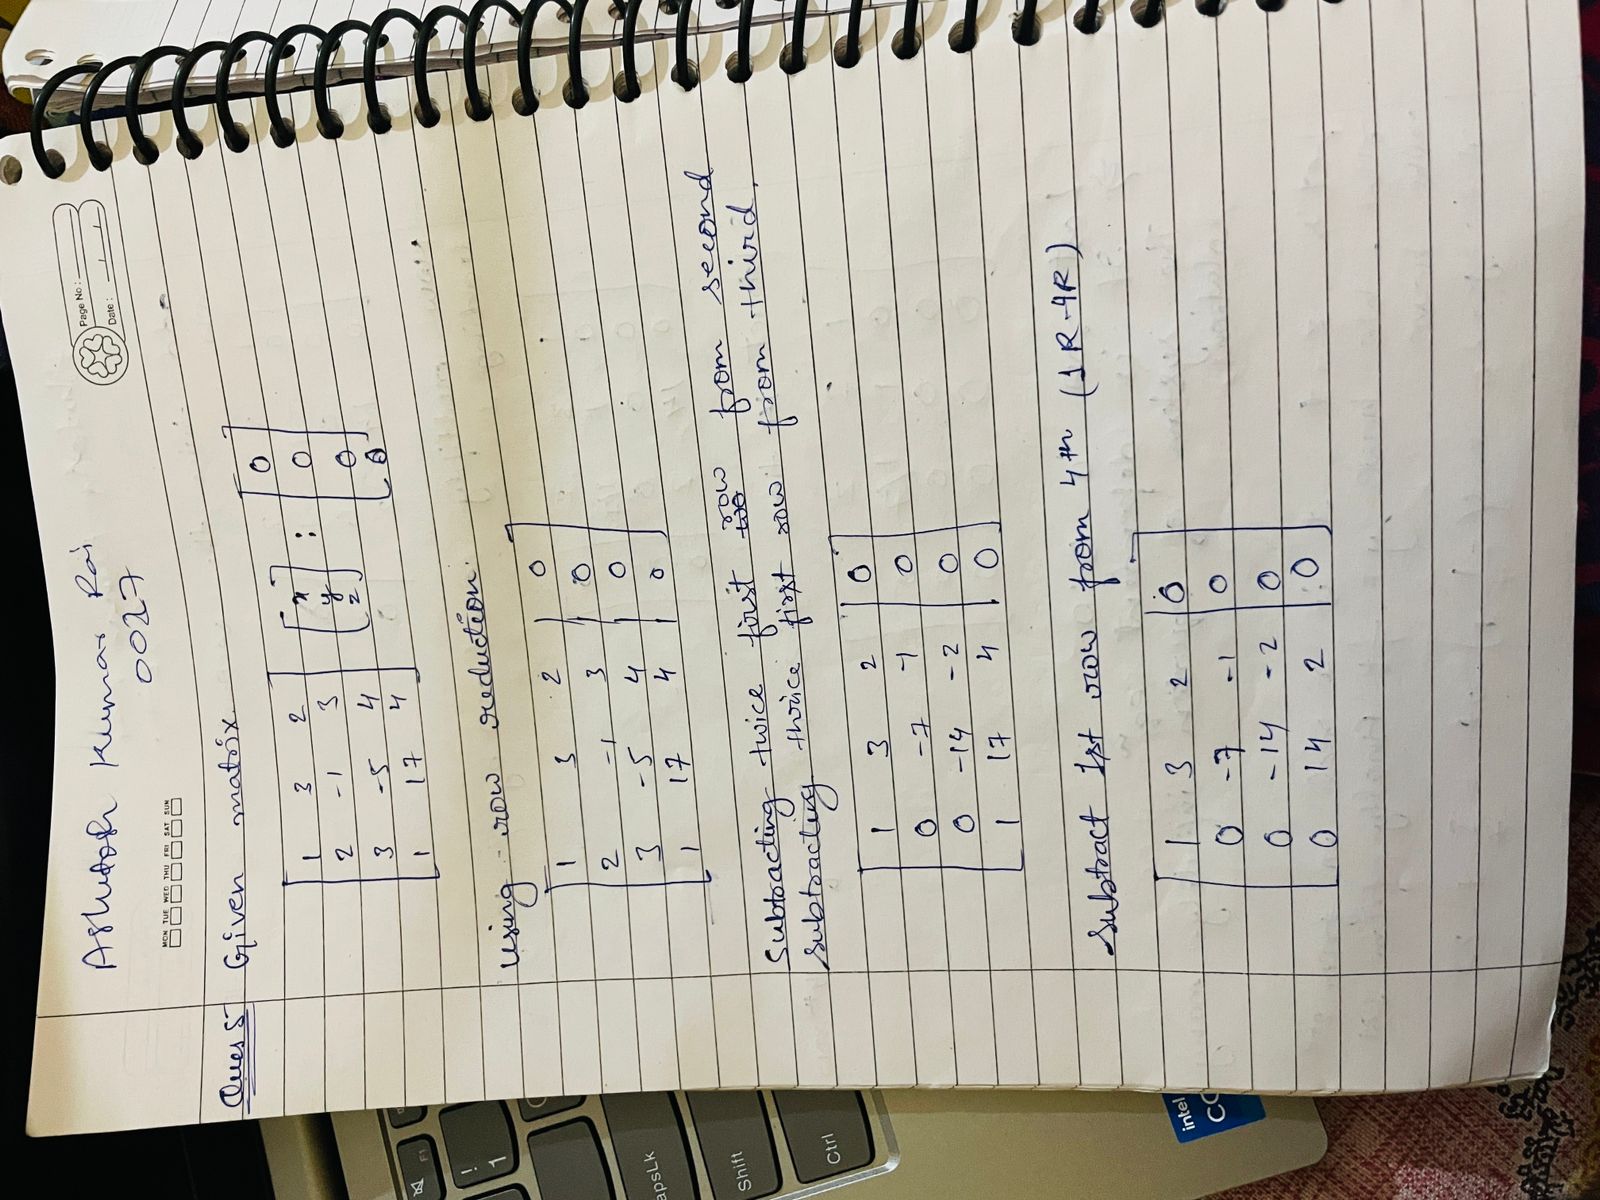 Page No :
Date :
Ashutosh Kumar Rai
0027
MON TUE WED THU FRI SAT SUN
Ques 5 Given matrix
1 3 2 [x] : 0
2 -1 3 y 0
3 -5 4 z 0
1 17 4 0
using row reduction.
1 3 2 | 0
2 -1 3 | 0
3 -5 4 | 0
1 17 4 | 0
Subtracting twice first row from second
Subtracting twice first row from third.
1 3 2 | 0
0 -7 -1 | 0
0 -14 -2 | 0
1 17 4 | 0
Subtract 1st row from 4th (1R-4R)
1 3 2 | 0
0 -7 -1 | 0
0 -14 -2 | 0
0 14 2 | 0
F1
! 1
apsLk
Shift
Ctrl
intel